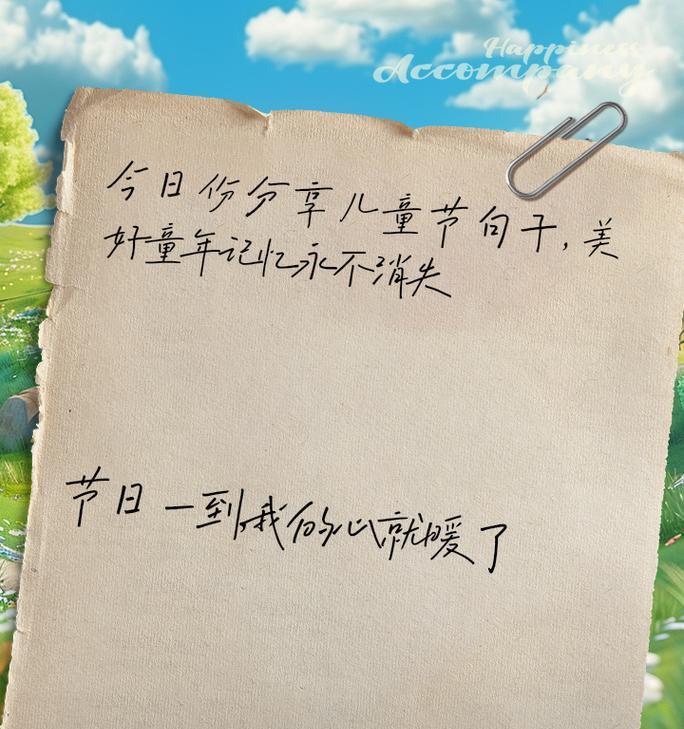 Happiness
Accompany
今日份分享儿童节句子,美
好童年记忆永不消失
节日一到我的心就暖了